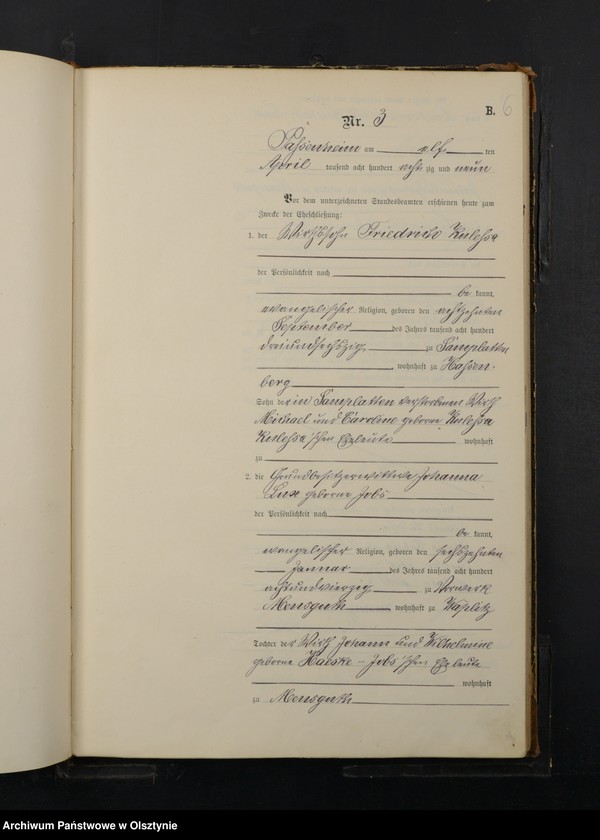 B. 6
Nr. 3
Passenheim am elf ten
April tausend acht hundert acht zig und neun
Vor dem unterzeichneten Standesbeamten erschienen heute zum
Zwecke der Eheschließung:
1. der Wirthssohn Friedrich Kulessa
der Persönlichkeit nach
be kannt,
evangelischer Religion, geboren den achtzehnten
September des Jahres tausend acht hundert
dreiundsechszig zu Samplatten
, wohnhaft zu
berg
Sohn der in Samplatten verstorbenen Wirth
Michael und Caroline geborne Kulessa
Kulessa'schen Eheleute wohnhaft
zu
2. die Grundbesitzerwittwe Johanna
Lux geborne Jobs
der Persönlichkeit nach
be kannt,
evangelischer Religion, geboren den sechszehnten
Januar des Jahres tausend acht hundert
achtundvierzig zu Vorwerk
Mensguth, wohnhaft zu
Tochter der Wirth Johann und Wilhelmine
geborne - Jobs'schen Eheleute
wohnhaft
zu Mensguth
Archiwum Państwowe w Olsztynie